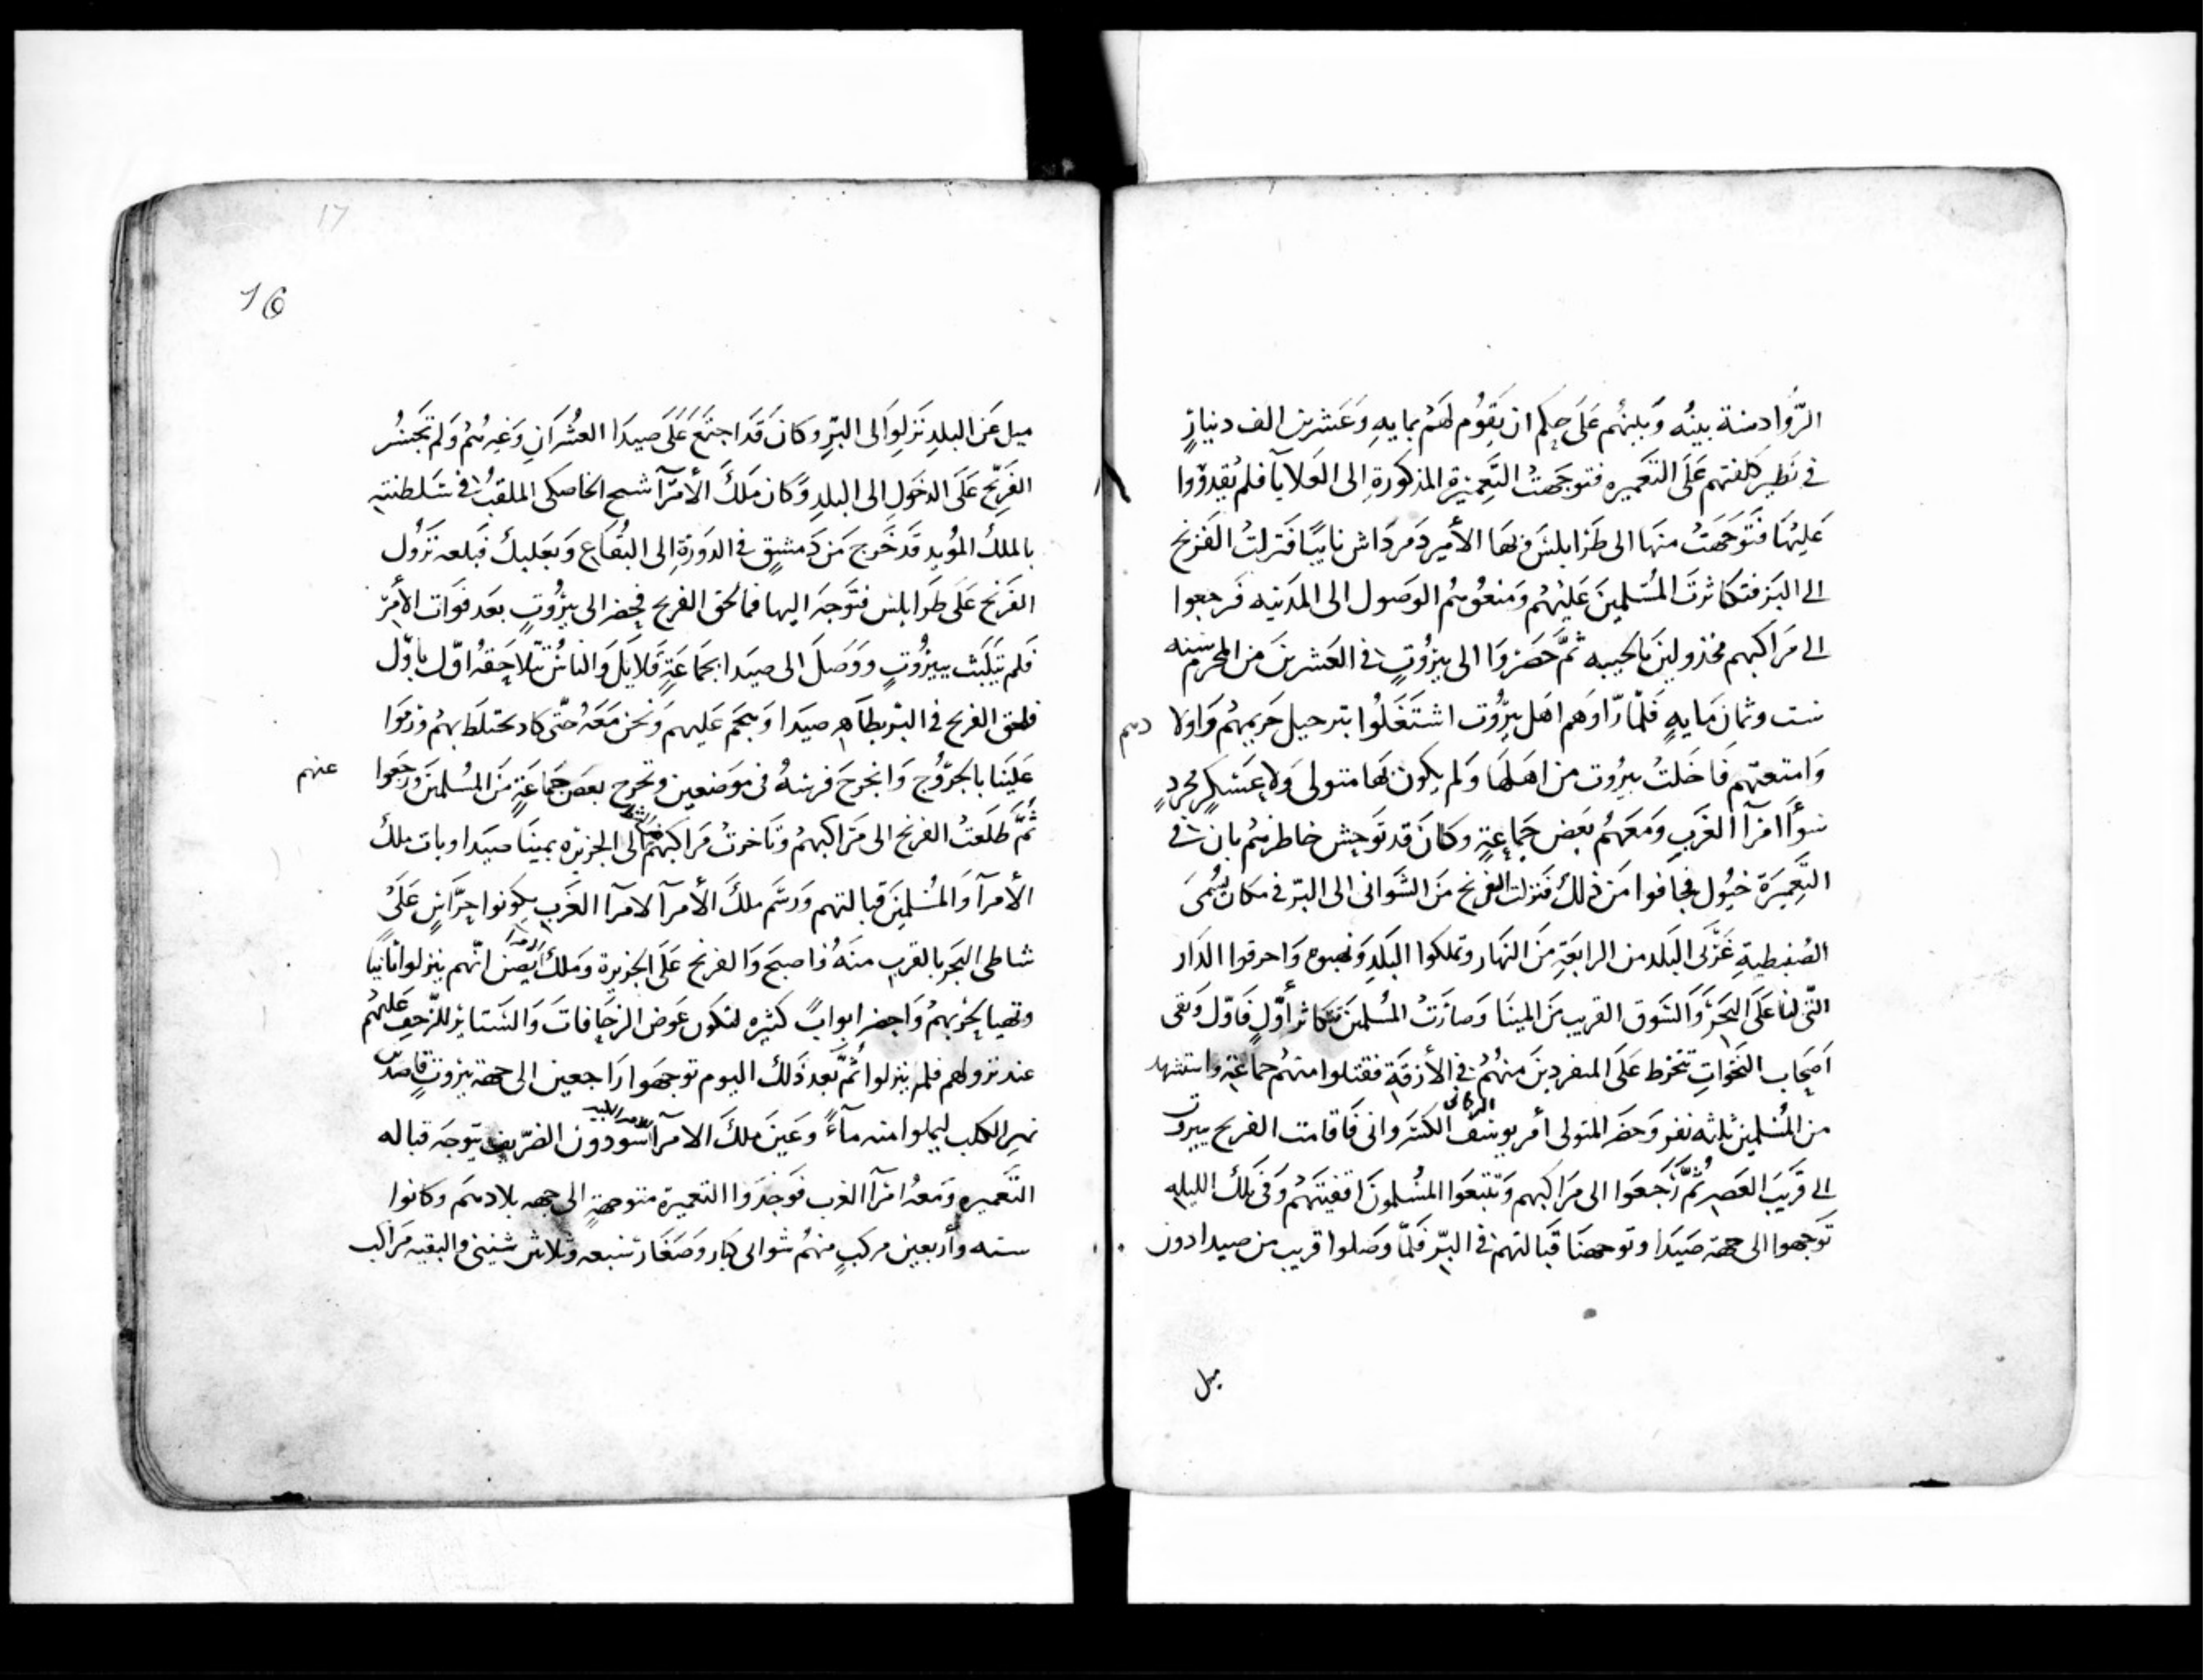 الرَّوادسة بينهُ وَبينهُم عَلَى حكم ان يَقوُم لهَمُ بمايهِ وَعَشرين الف دينارٍ
في نَظير كلفتهم عَلَى التعَميره فتوجَهَتُ التَّعِميَرة المذكورَةِ الى العَلايآ فلم يقدرُوا
عَليهَا فَتَوجَّهَتُ منهَا الى طَرَابلسَ وَبهَا الأمير دَمرَداش نايبًا فَنَرلتُ الفَرنج
الى البَر فتكاثرتَ المُسَلمينَ عَليْهم وَمَنعُوهُم الوَصول الى المَدينه فَرجعوا
الى مَرَاكبهم مخذولينَ بالخيبه ثمَّ حَضروَا الى بيروُتٍ في العَشرينَ من المحرم سَنه
ست وثمان مَايهٍ فَلَمّا رّاوهَم اهَل بيروُت اشتَغَلُوا بترحيل حَريمهُم وَاولادهم
وَامتعتهم فَاخلَتُ بيروُت من اهَلهَا وَلم يكون بهَا متولى وَلا عَسَكرٍ مُجردٍ
سوَأ امرآ الغَربِ وَمَعهُم بَعض جَماعةٍ وكانَ قد تَوحش خاطرهُم بان في
التَّعِميَرَة خيُول فخافوا من ذلك فنزلت الفرنج منَ الشَوانى الى البرّ في مكان يُسُمىَ
الصُنبطيةِ غَرْبى البَلد من الرابعَةِ مِنَ النهَار وتملكوا البَلدِ وَنهبوه وَاحرقوا الدَار
التّى لنا عَلَى البَحَر وَالسَوق القريب منَ المينَا وَصارَتُ المُسلمينَ تتكاثر أوَّلٍ فَاوّل وَبقى
اَصحَاب النَخَوات تنخرَط عَلَى المنفردينَ منهُم في الأزقَةِ فقتلوا منهُم جماعَةٍ واستشهد
من المُسلمين ثلثه نفر وَحضَر المتولى أمر يوسُف التركمانى الكسَروانى فَاقامت الفرنج ببيروت
الى قَريَبَ العَصِر ثُمَّ رَجَعَوا الى مرَاكبهم وَتتبعَوا المُسُلمونَ اقفيَتهُم وَفى تلك الليله
تَوَجَّهوا الى جهة صَيَدا وتوجهنَا قبَالتهمَ في البَرّ فَلمّا وصَلوا قريب من صيدا دون
ميل
17
16
ميل عَن البلدِ نَزَلوا الى البَرِّ وكانَ قَدَ اجتمَع عَلَى صيدَا العشُرَانِ وَغيرهُمُ وَلم تَجَسُر
الفَرنج عَلَى الدخَولِ الى البلدِ وَكان مَلكَ الأمرَآ شيخ الخاصكى الملقبُ في سَلطنته
بالملك المؤيد قَد خَرج منَ دَمشقٍ في الدَوَرةِ الى البُقَاعِ وَبعَلبك فَبلعه نَزُول
الفرَنج عَلَى طَرابلس فتَوَّجهَ اليها فمالحق الفرنج فحضر الى بيروُتٍ بعَد فوَات الأَمَرِ
فَلم يَتَلبَث ببيروُتٍ ووَصَلَ الى صيَدا بجَمَاعَةٍ قَلايلَ وَالناسُ تَتلاحَقهُ اوّل باوّل
فلحق الفرنج في البَرّ بظَاهر صيَدا وَهجَم عَليهمَ وَنَحن مَعَهُ حتّى كاد يختلَط بهمُ وَرَموا
عَليَنا بالجُرّوُج وَانجَرحَ فرسُهُ فى موَضعين وَتحرج بعَض جَمَاعَةٍ منَ المُسُلمينَ وَرجَعوا عنهم
ثُمَّ طَلعَتُ الفرنج الى مَرَاكبهُم وتَاخرتُ مَرَاكبهُم الى الجزيَره بمينَا صيَدا وبات ملك
الأمرآ وَالمُسُلمِينَ قبالتهم وَرسَم ملكَ الأمرآ لامرآ الغَربِ يكونوا حِرَّاسٍ عَلَى
شاطى البَحرِ بالقربِ منهُ فاصبحَ وَالفرنج عَلَى الجزيرة وَملك الامرا يَظن انّهم ينزلوا ثانيًا
وتهيا لحَربهمُ وَاحضر ابوابًا كثيره لتكَون عوَض الزحَافات وَالسَتاير للزّحفِ عَليهُم
عند نزولهم فلم ينزلوا ثُمَّ بَعد ذَلك اليوم توَجهَوا رَاجعين الى جهة بيروُتٍ قَاصدين
نهر الكلب ليملوا منه مآءً وَعَينَ ملكَ الامرآ سودون الظريف يتوجهَ قباله
التَّعميره وَمعهُ امرآ الغرب فَوَجدَوا التعَميرة متوجهةٍ الى جهه بلادهمَ وكانوا
سته وأربعين مركبٍ منهُم شوانى كبَار وَصغَار سَبعه وثلاثين شينى والبقيه مَراكب